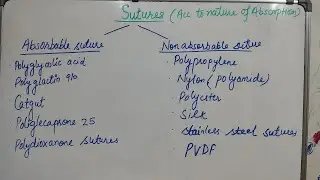 Sutures (Acc to nature of Absorption)
Absorbable suture
Polyglycolic acid
Polyglactin 910
Catgut
Poliglecaprone 25
Polydioxanone sutures
Nonabsorbable suture
Polypropylene
Nylon (polyamide)
Polyester
Silk
stainless steel sutures
PVDF